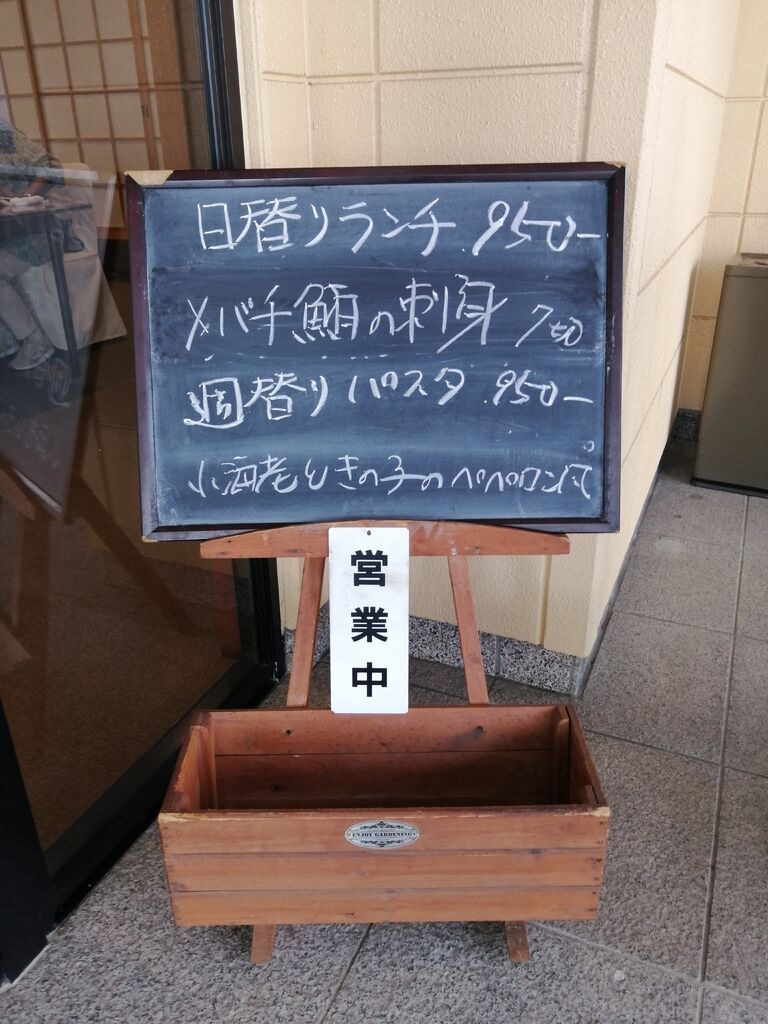 日替りランチ 950-
メバチ鮪の刺身 750
週替りパスタ 950-
小海老ときの子のペペロンチーノ
営業中
ENJOY GARDENING